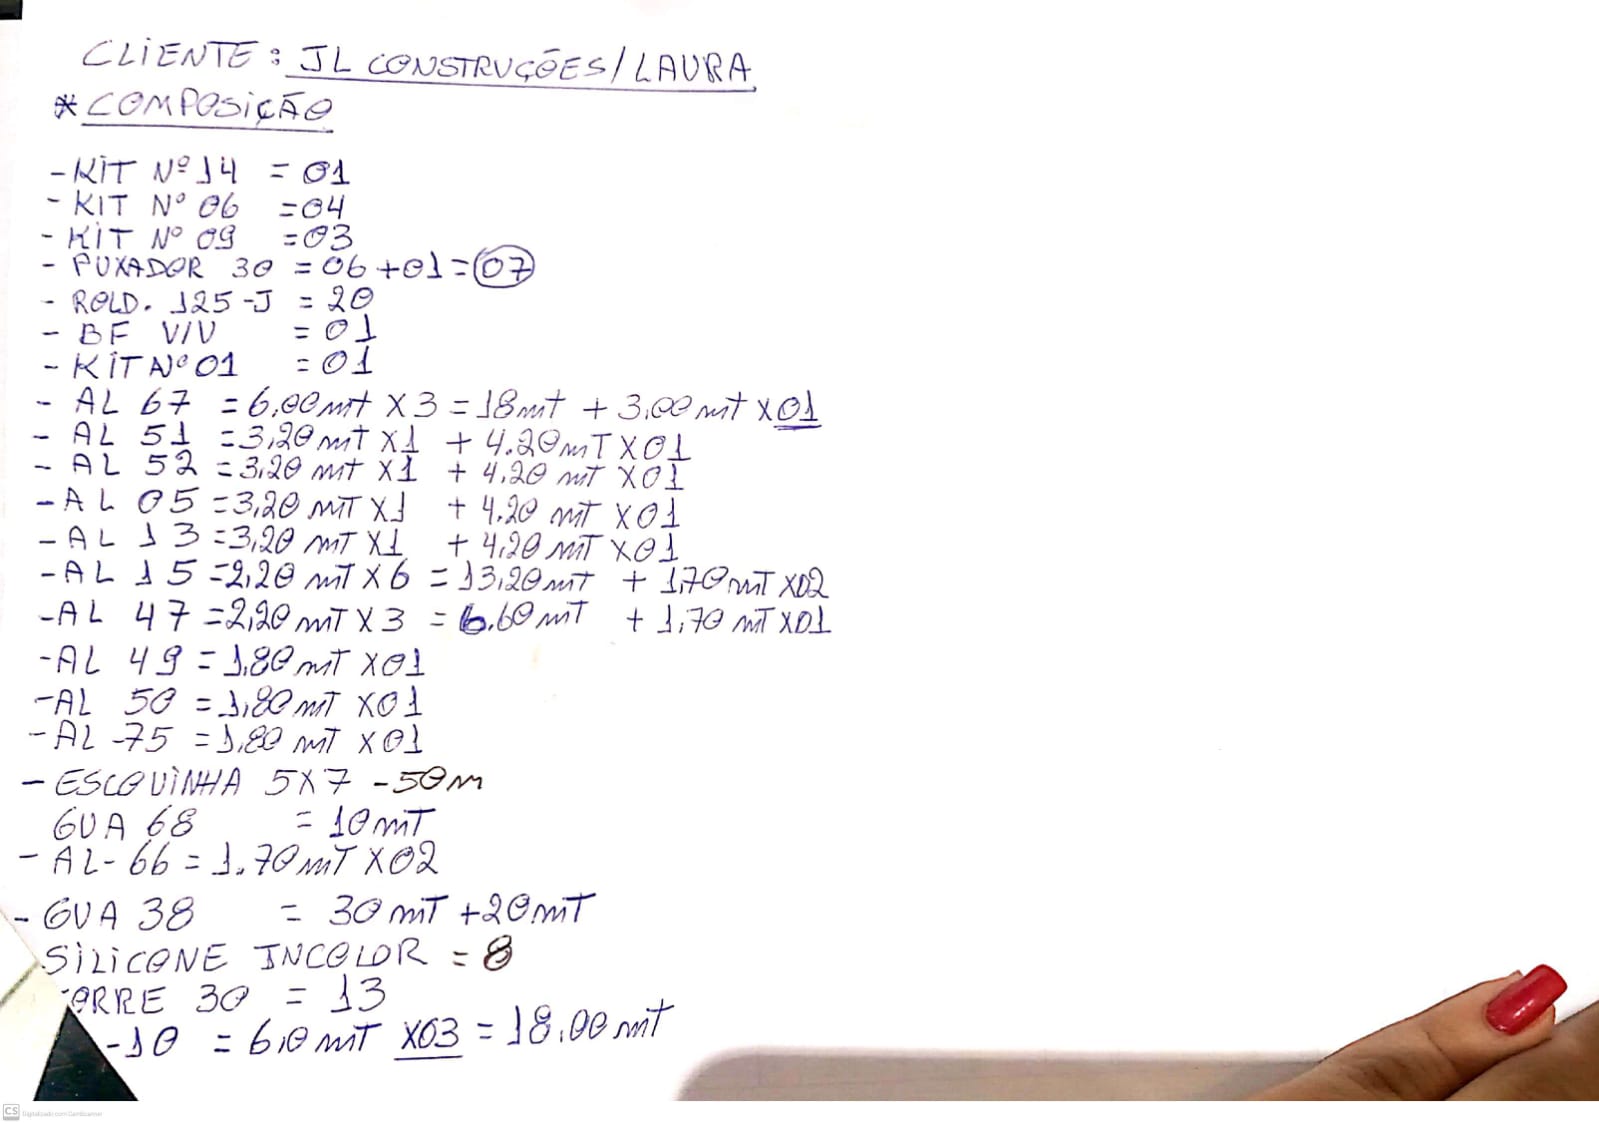 CLIENTE: JL CONSTRUÇÕES/LAURA
* COMPOSIÇÃO
- KIT Nº 14 = 01
- KIT Nº 06 = 04
- KIT Nº 09 = 03
- PUXADOR 30 = 06 + 01 = 07
- ROLD. 125-J = 20
- BF V/V = 01
- KIT Nº 01 = 01
- AL 67 = 6,00 mt X 3 = 18 mt + 3,00 mt X 01
- AL 51 = 3,20 mT X 1 + 4.20 mT X 01
- AL 52 = 3,20 mt X 1 + 4,20 mT X 01
- AL 05 = 3,20 mT X 1 + 4.20 mT X 01
- AL 13 = 3,20 mT X 1 + 4,20 mT X 01
- AL 15 = 2,20 mT X 6 = 13,20 mt + 1,70 mT X 02
- AL 47 = 2,20 mT X 3 = 6.60 mT + 1,70 mT X 01
- AL 49 = 1,80 mT X 01
- AL 50 = 1,80 mT X 01
- AL -75 = 1,80 mT X 01
- ESCOVINHA 5X7 - 50m
GUA 68 = 10 mT
- AL- 66 = 1.70 mT X 02
- GUA 38 = 30 mT + 20 mT
SILICONE INCOLOR = 8
ORRE 30 = 13
-10 = 6,0 mT X03 = 18,00 mt
CS Digitalizado com CamScanner